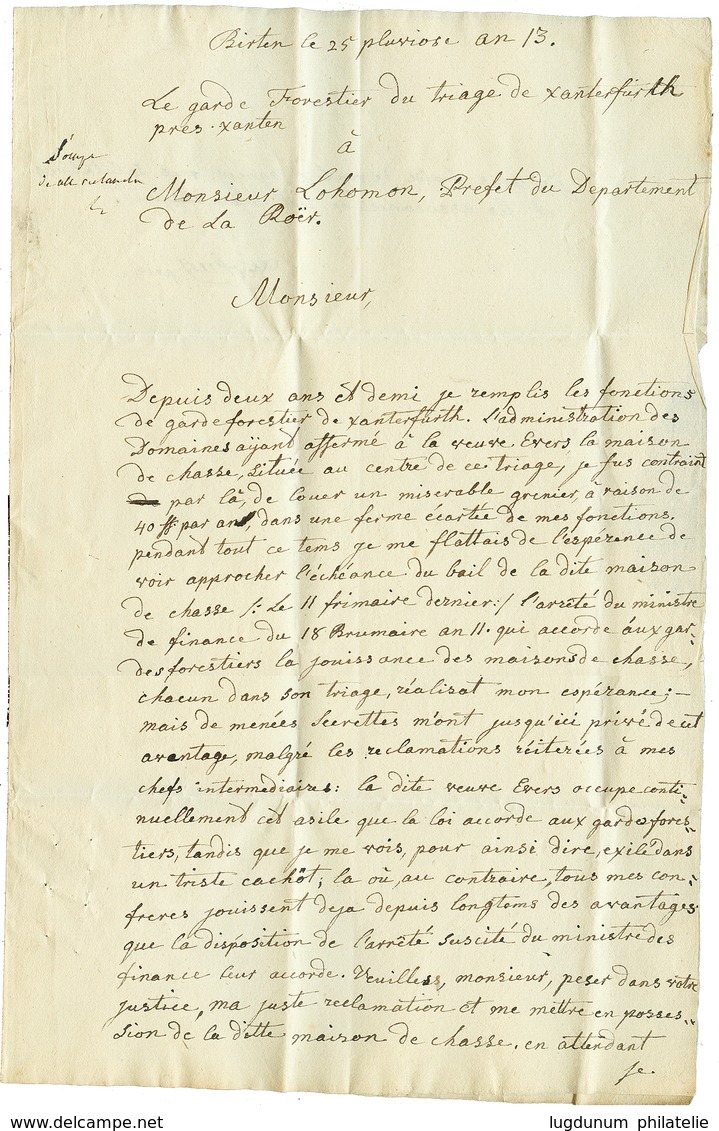 Birten le 25 pluviose an 13.
Le garde Forestier du triage de xanterfürth
pres xanten
à
Monsieur Lohomon, Prefet du Departement
de La Roër.
Monsieur,
Depuis deux ans et demi je remplis les fonctions
de garde forestier de xanterfürth. L'administration des
Domaines aÿant affermé à la veuve Evers la maison
de chasse, située au centre de ce triage, je fus contraint
par là, de louer un miserable grenier, à raison de
40 ff. par an, dans une ferme écartée de mes fonctions.
pendant tout ce tems je me flattais de l'espérence de
voir approcher l'échéance du bail de la dite maison
de chasse /: Le 11 frimaire dernier :/ l'arrêté du ministre
de finance du 18 Brumaire an 11. qui accorde áux gar-
des forestiers la jouissance des maisons de chasse,
chacun dans son triage, réalisat mon espérance; -
mais de menées secrettes m'ont jusqu'ici privé de cet
avantage, malgré les reclamations réiterées à mes
chefs intermediaires: la dite veuve Evers occupe conti-
nuellement cet asile que la loi accorde aux gardes fores-
tiers, tandis que je me vois, pour ainsi dire, exilé dans
un triste cachôt; la où, au contraire, tous mes con-
freres jouissent deja depuis longtems des avantages
que la disposition de l'arrêté suscité du ministre des
finance leur accorde. Veuilless, monsieur, peser dans votre
justice, ma juste reclamation et me mettre en posses-
sion de la ditte maison de chasse. en attendant
je.
www.delcampe.net
lugdunum philatelie